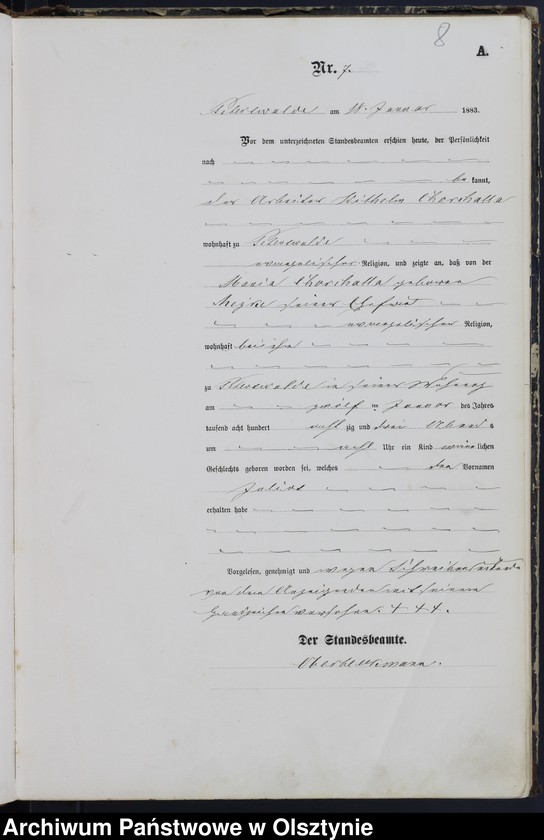 8
A.
Nr. 7.
am 18. Januar 1883.
Vor dem unterzeichneten Standesbeamten erschien heute, der Persönlichkeit
nach
be kannt,
der Arbeiter Wilhelm Chorchalla
wohnhaft zu
evangelischer Religion, und zeigte an, daß von der
Maria Chorchalla geborene
seiner Ehefrau
evangelischer Religion,
wohnhaft bei ihm
zu in seiner Wohnung
am zwölf ten Januar des Jahres
tausend acht hundert acht zig und drei Abend s
um acht Uhr ein Kind männlichen
Geschlechts geboren worden sei, welches den Vornamen
Julius
erhalten habe
Vorgelesen, genehmigt und wegen
von dem Anzeigenden mit seinem
Handzeichen versehen. + + +.
Der Standesbeamte.
Archiwum Państwowe w Olsztynie